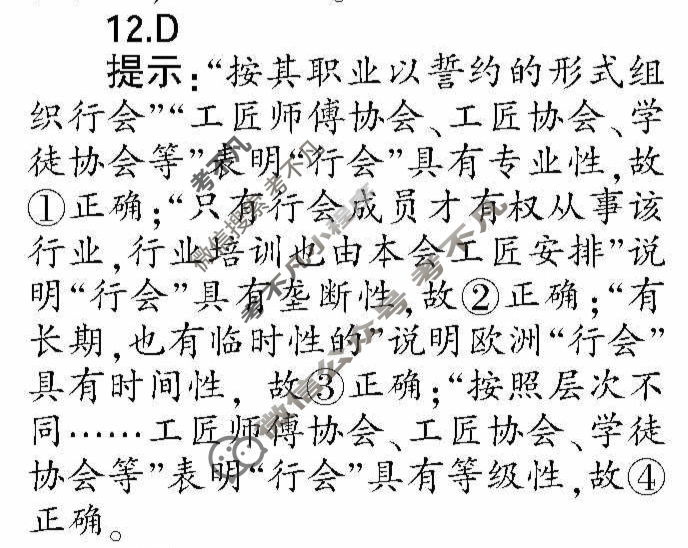 12.D
提示：“按其职业以誓约的形式组
织行会”“工匠师傅协会、工匠协会、学
徒协会等”表明“行会”具有专业性，故
①正确；“只有行会成员才有权从事该
行业，行业培训也由本会工匠安排”说
明“行会”具有垄断性，故②正确；“有
长期，也有临时性的”说明欧洲“行会”
具有时间性，故③正确；“按照层次不
同……工匠师傅协会、工匠协会、学徒
协会等”表明“行会”具有等级性，故④
正确。
考不凡
微信搜索考不凡
考不凡小程序
微信公众号 考不凡